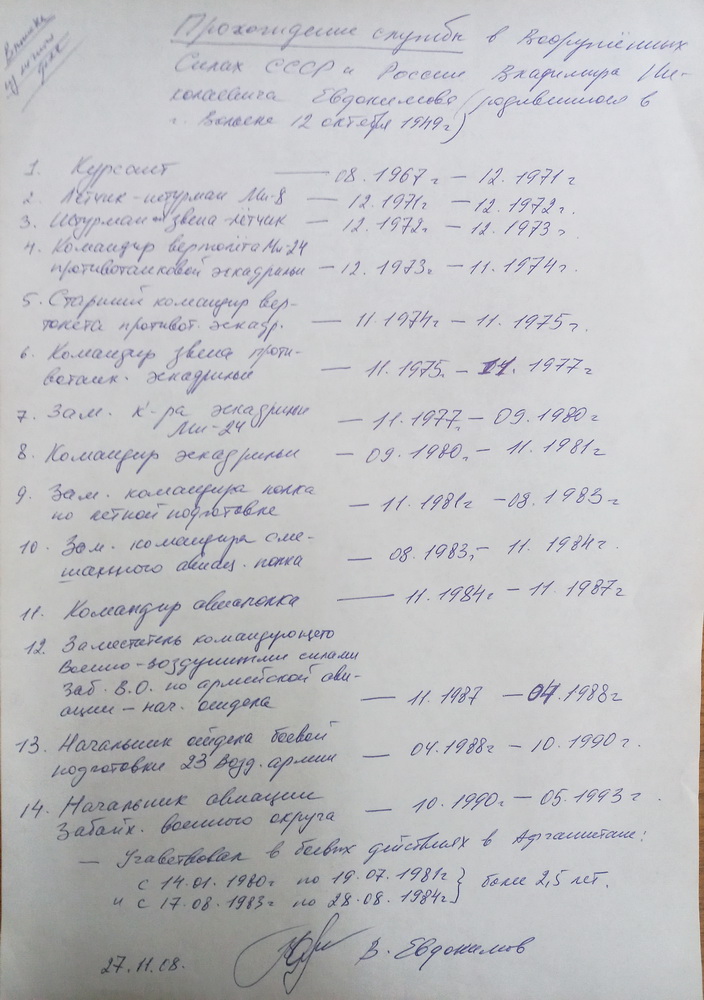 Выписка
из личн.
дела
Прохождение службы в Вооружённых
Силах СССР и России Владимира Ни-
колаевича Евдокимова (родившегося в
г. Вольске 12 октября 1949г)
1. Курсант — 08.1967г – 12.1971г
2. Лётчик-штурман Ми-8 — 12.1971г – 12.1972г.
3. Штурман звена-лётчик — 12.1972г. – 12.1973г.
4. Командир вертолёта Ми-24
противотанковой эскадрильи — 12.1973г. – 11.1974г.
5. Старший командир вер-
толета противот. эскадр. — 11.1974г – 11.1975г.
6. Командир звена проти-
вотанк. эскадрильи — 11.1975. – 11.1977г
7. Зам. к-ра эскадрильи
Ми-24 — 11.1977г – 09.1980г
8. Командир эскадрильи — 09.1980г – 11.1981г
9. Зам. командира полка
по летной подготовке — 11.1981г – 08.1983г
10. Зам. командира сме-
шанного авиац. полка — 08.1983г – 11.1984г.
11. Командир авиаполка — 11.1984г – 11.1987г
12. Заместитель командующего
Военно-воздушными силами
Заб. В.О. по армейской ави-
ации – нач. отдела — 11.1987 – 04.1988г
13. Начальник отдела боевой
подготовки 23 Возд. армии — 04.1988г – 10.1990г.
14. Начальник авиации
Забайк. военного округа — 10.1990г – 05.1993г.
— Участвовал в боевых действиях в Афганистане:
с 14.01.1980г по 19.07.1981г } более 2,5 лет.
и с 17.08.1983г по 28.08.1984г
27.11.08. В. Евдокимов